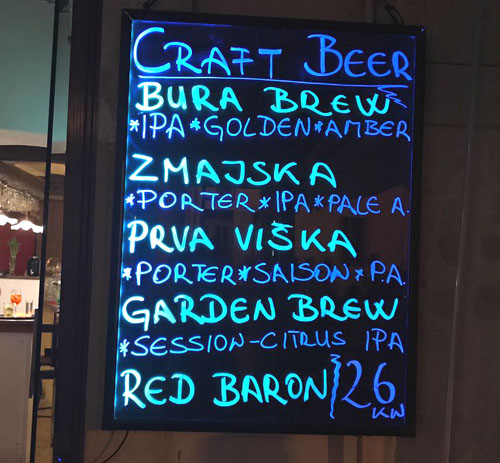 CRAFT BEER
BURA BREW
*IPA*GOLDEN*AMBER
ZMAJSKA
*PORTER*IPA*PALE A.
PRVA VIŠKA
*PORTER*SAISON*P.A.
GARDEN BREW
*SESSION-CITRUS IPA
RED BARON 26 KN